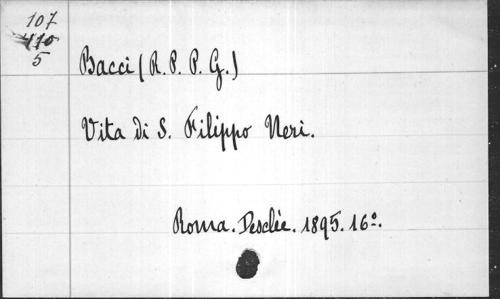 107
110
5
Bacci (R. P. P. G.)
Vita di S. Filippo Neri.
Roma. Desclée. 1895. 16º.